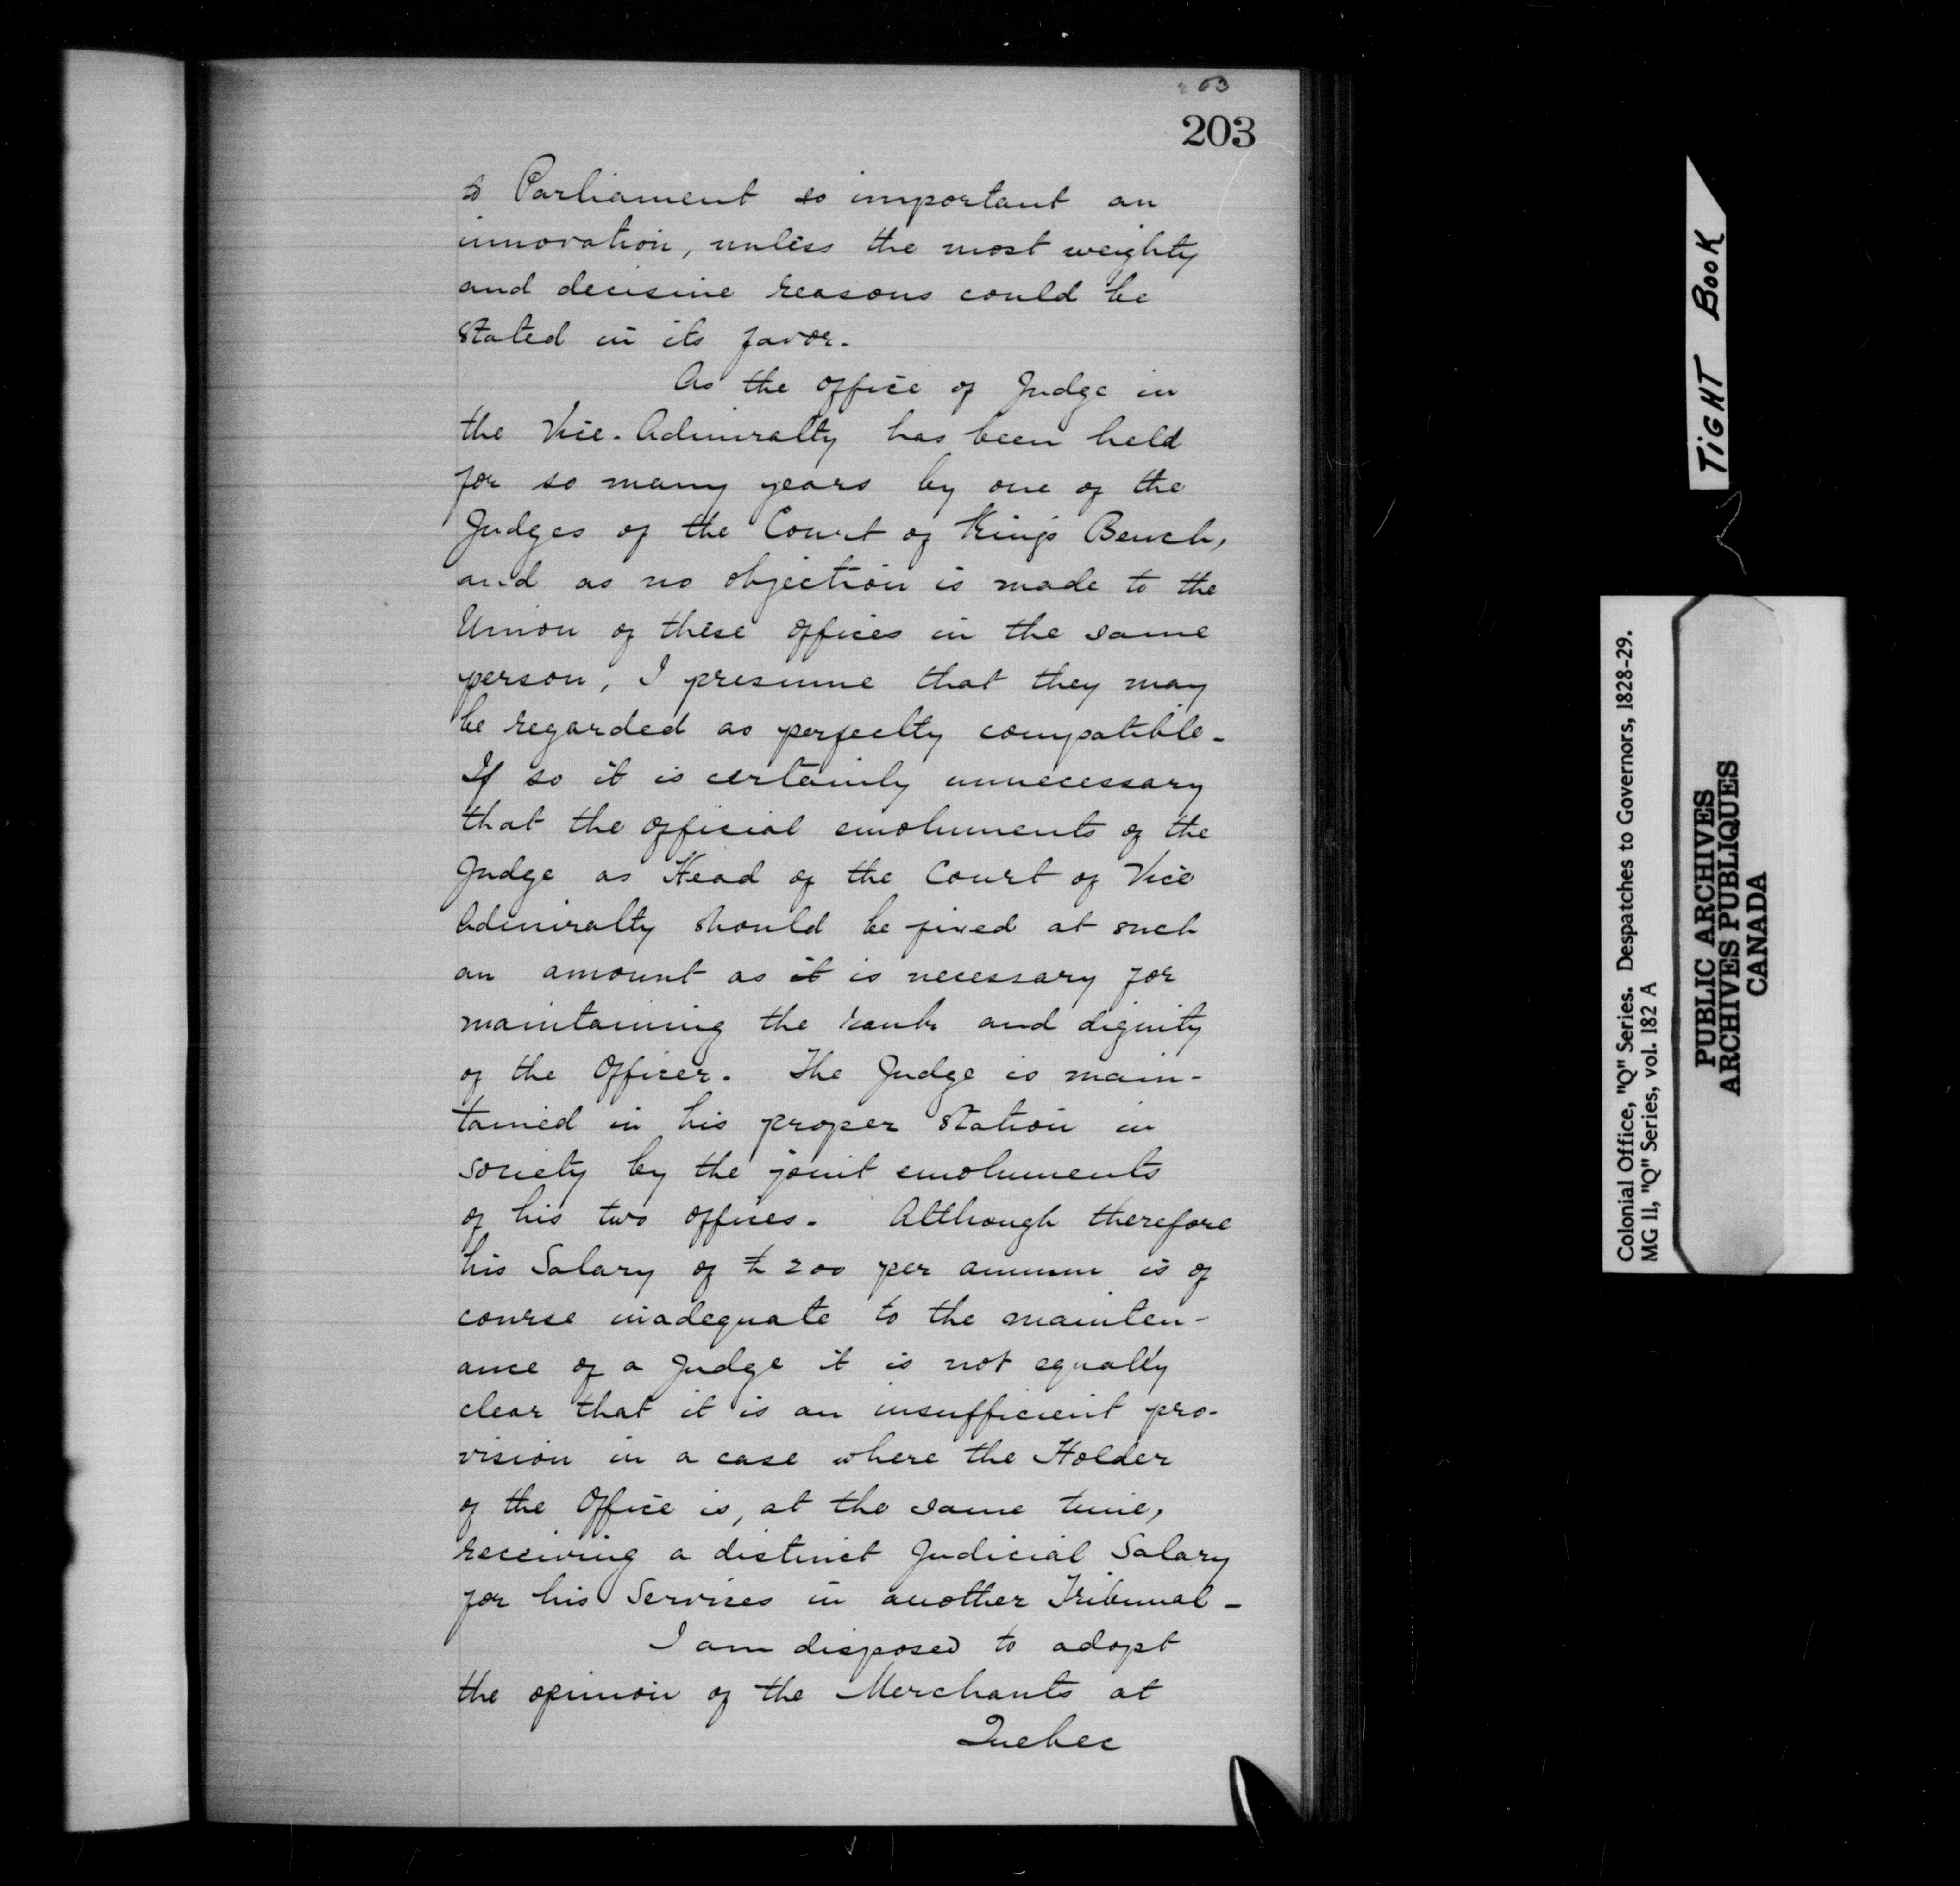 203
203
to Parliament so important an
innovation, unless the most weighty
and decisive reasons could be
stated in its favor.
As the office of Judge in
the Vice-Admiralty has been held
for so many years by one of the
Judges of the Court of Kings Bench,
and as no objection is made to the
Union of these offices in the same
person, I presume that they may
be regarded as perfectly compatible -
If so it is certainly unnecessary
that the official emoluments of the
Judge as Head of the Court of Vice
Admiralty should be fixed at such
an amount as it is necessary for
maintaining the rank and dignity
of the Officer. The Judge is main-
tained in his proper station in
society by the joint emoluments
of his two offices. Although therefore
his Salary of £200 per annum is of
course inadequate to the mainten-
ance of a Judge it is not equally
clear that it is an insufficient pro-
vision in a case where the Holder
of the Office is, at the same time,
receiving a distinct Judicial Salary
for his Services in another Tribunal -
I am disposed to adopt
the opinion of the Merchants at
Quebec
TIGHT BOOK
Colonial Office, "Q" Series. Despatches to Governors, 1828-29.
MG 11, "Q" Series, vol. 182 A
PUBLIC ARCHIVES
ARCHIVES PUBLIQUES
CANADA